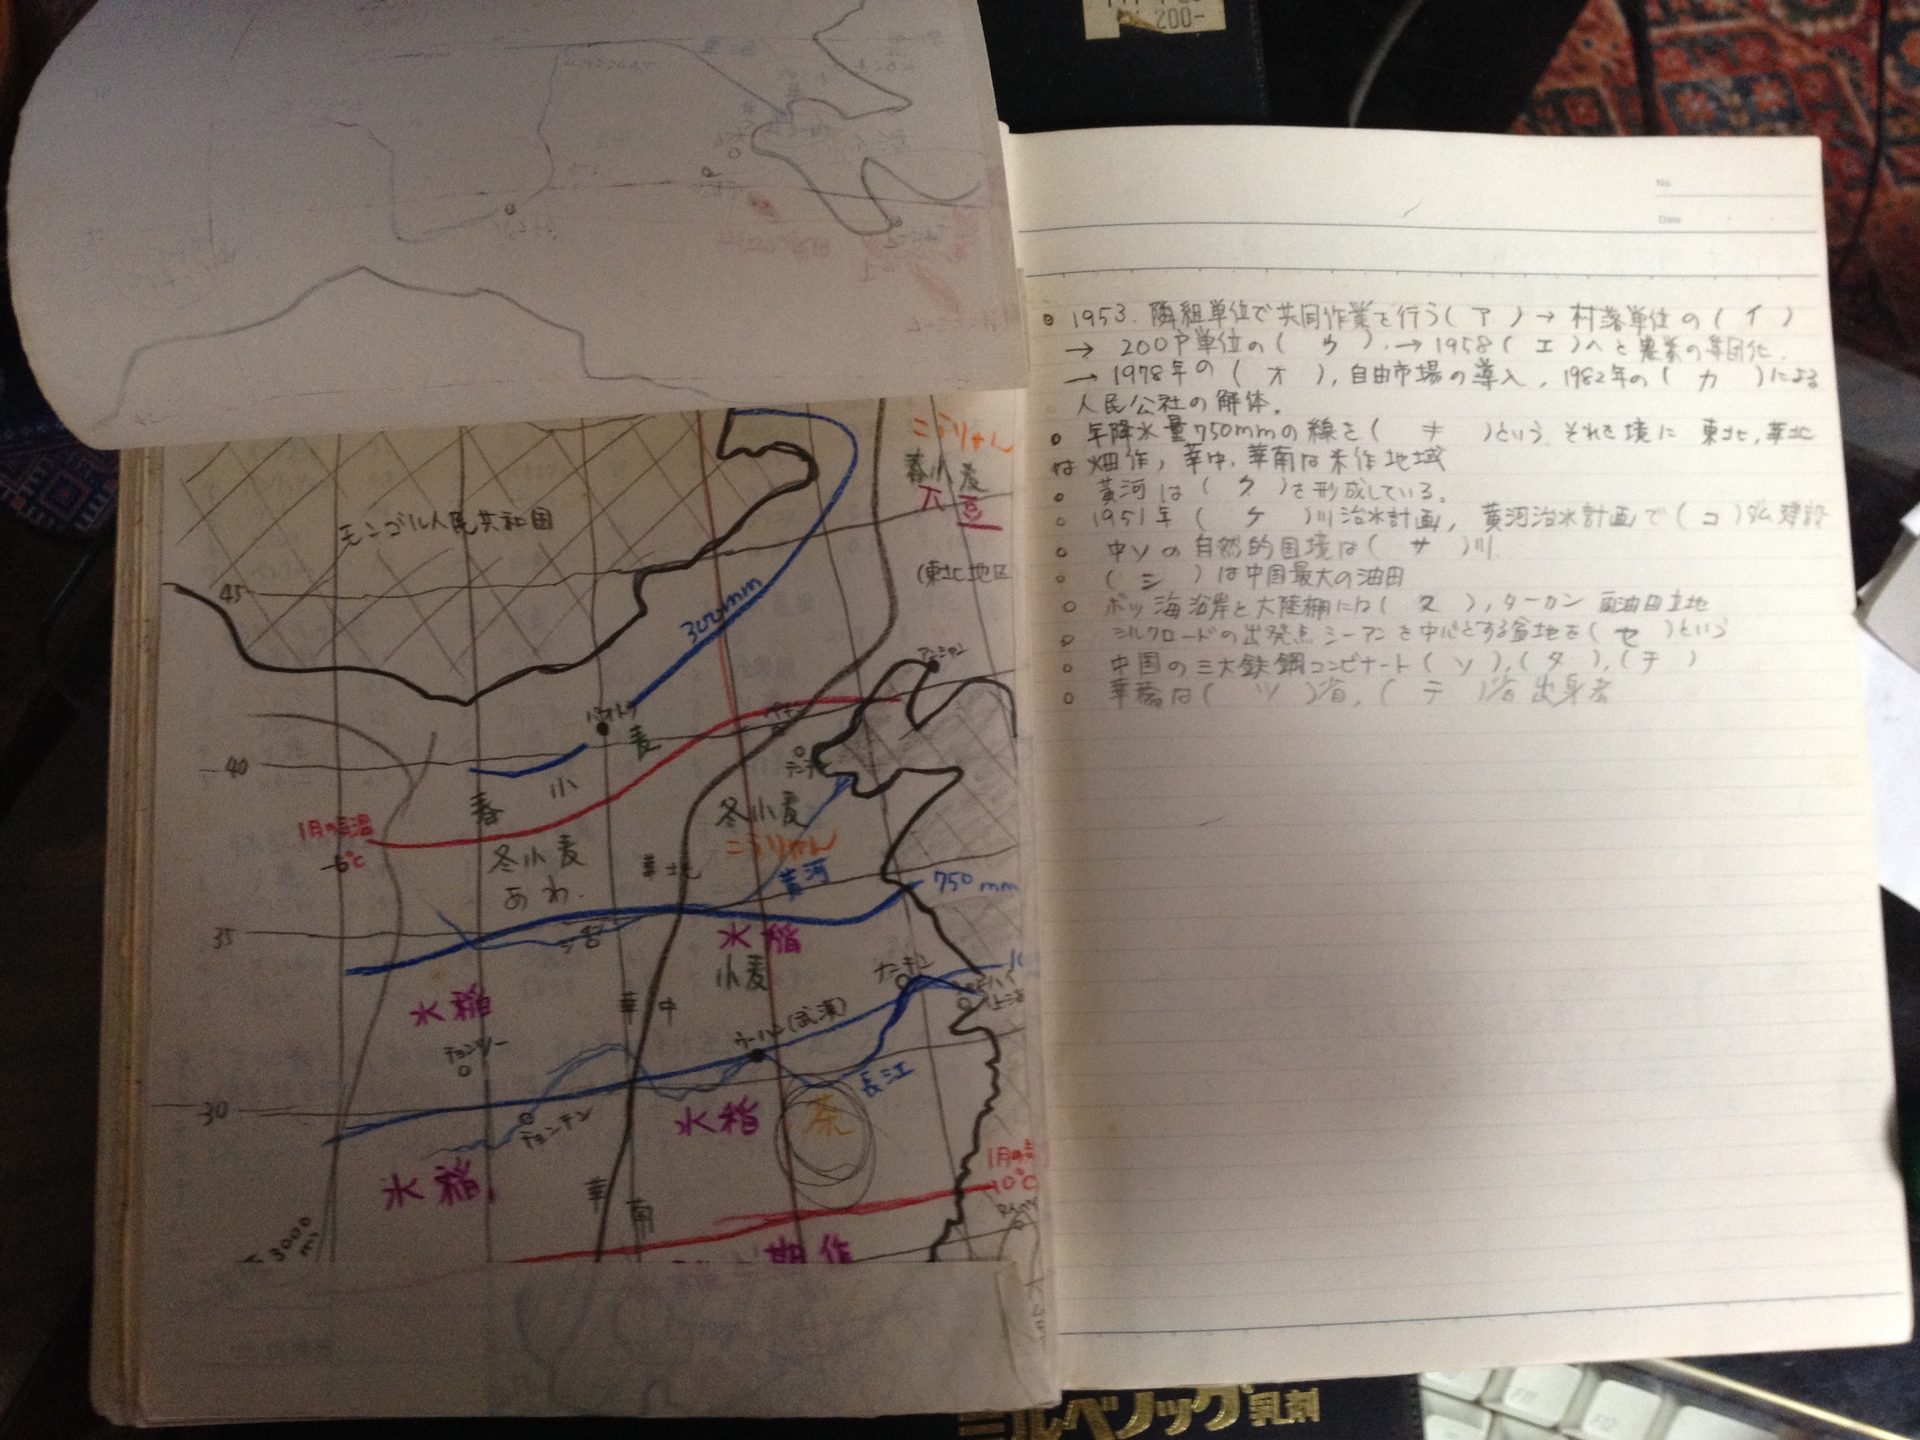 200-
モンゴル人民共和国
こうりゃん
春小麦
大豆
(東北地区
45
300mm
アンシャン
パオトウ
ペキン
春小麦
40
テンチン
冬小麦
こうりゃん
1月の気温
-6℃
冬小麦
あわ.
華北
黄河
750mm
35
水稲
小麦
ナンキン
水稲
華中
ウーハン(武漢)
長江
30
チョンチン
水稲
茶
水稲
華南
1月の気
10℃
3000m
期作
No.
Date
○ 1953. 隣組単位で共同作業を行う( ア ) → 村落単位の( イ )
→ 200戸単位の( ウ ). → 1958( エ )へと農業の集団化.
→ 1978年の( オ ), 自由市場の導入, 1982年の( カ )による
人民公社の解体.
○ 年降水量750mmの線を( キ )という それを境に 東北, 華北
は畑作, 華中, 華南は米作地域
○ 黄河は( ク )を形成している.
○ 1951年( ケ )川治水計画, 黄河治水計画で( コ )ダム建設
○ 中ソの自然的国境は( サ )川.
○ ( シ )は中国最大の油田
○ ボッ海沿岸と大陸棚には( ス ), ターカン 両油田立地
○ シルクロードの出発点シーアンを中心とする盆地を( セ )という
○ 中国の三大鉄鋼コンビナート( ソ ),( タ ),( チ )
○ 華僑は( ツ )省,( テ )省出身者
ミルベノック乳剤